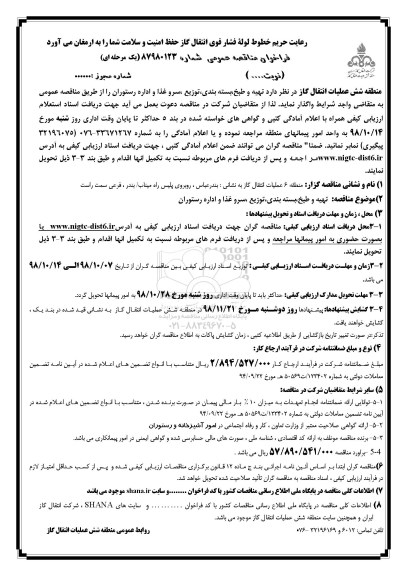 رعایت حریم خطوط لولهٔ فشار قوی انتقال گاز حفظ امنیت و سلامت شما را به ارمغان می آورد
فراخوان مناقصه عمومی شماره ۸۷۹۸۰۱۲۳ (یک مرحله ای)
(نوبت.....) شماره مجوز :.......
منطقه شش عملیات انتقال گاز در نظر دارد تهیه و طبخ،بسته بندی،توزیع ،سرو غذا و اداره رستوران را از طریق مناقصه عمومی
به متقاضی واجد شرایط واگذار نماید. لذا از متقاضیان شرکت در مناقصه دعوت بعمل می آید جهت دریافت اسناد استعلام
ارزیابی کیفی همراه با اعلام آمادگی کتبی و گواهی های خواسته شده در بند ۵ حداکثر تا پایان وقت اداری روز شنبه مورخ
۹۸/۱۰/۱۴ به واحد امور پیمانهای منطقه مراجعه نموده و یا اعلام آمادگی را به شماره ۳۳۶۷۱۲۶۷-۰۷۶ (۳۲۱۹۶۰۷۵
پیگیری) نمابر نمایید. ضمنا" مناقصه گران می توانند ضمن اعلام آمادگی کتبی ، جهت دریافت اسناد ارزیابی کیفی به آدرس
www.nigtc-dist6.ir مراجعه و پس از دریافت فرم های مربوطه نسبت به تکمیل آنها اقدام و طبق بند ۳-۳ ذیل تحویل
نمایند.
۱) نام و نشانی مناقصه گزار: منطقه ۶ عملیات انتقال گاز به نشانی : بندرعباس ، روبروی پلیس راه میناب/ بندر ، فرعی سمت راست
۲)موضوع مناقصه: تهیه و طبخ،بسته بندی،توزیع ،سرو غذا و اداره رستوران
۳) محل ، زمان و مهلت دریافت اسناد و تحویل پیشنهادها :
۳-۱محل دریافت اسناد ارزیابی کیفی: مناقصه گران جهت دریافت اسناد ارزیابی کیفی به آدرس www.nigtc-dist6.ir یا
بصورت حضوری به امور پیمانها مراجعه و پس از دریافت فرم های مربوطه نسبت به تکمیل آنها اقدام و طبق بند ۳-۳ ذیل
تحویل نمایند.
۳-۲زمان و مهلت دریافت اسناد ارزیابی کیفی : توزیع اسناد ارزیابی کیفی بین مناقصه گران از تاریخ ۹۸/۱۰/۰۷الی ۹۸/۱۰/۱۴
می باشد.
۳-۳ مهلت تحویل مدارک ارزیابی کیفی: حداکثر باید تا پایان وقت اداری روز شنبه مورخ ۹۸/۱۰/۲۸ به امور پیمانها تحویل گردد.
۳-۴ گشایش پیشنهادها: پیشنهادها روز دوشنبه مورخ ۹۸/۱۱/۲۱ در منطقه شش عملیات انتقال گاز به نشانی قید شده در بند یک ،
گشایش خواهند یافت.
تذکر:در صورت تغییر تاریخ بازگشایی از طریق اطلاعیه کتبی ، زمان گشایش پاکات به اطلاع مناقصه گران خواهد رسید.
۴) نوع و مبلغ ضمانتنامه شرکت در فرآیند ارجاع کار:
مبلغ ضمانتنامه شرکت در فرآیند ارجاع کار ۲/۸۹۴/۵۲۷/۰۰۰ ریال متناسب با انواع تضمین های اعلام شده در آیین نامه تضمین
معاملات دولتی به شماره ۱۲۳۴۰۲/ت۵۰۶۵۹ هـ مورخ ۹۴/۰۹/۲۲
۵) سایر شرایط متقاضیان شرکت در مناقصه:
۵-۱-توانایی ارائه ضمانتنامه انجام تعهدات به میزان ۱۰٪ بار مالی پیمان در صورت برنده شدن ، متناسب با انواع تضمین های اعلام شده در
آیین نامه تضمین معاملات دولتی به شماره ۱۲۳۴۰۲/ت۵۰۶۵۹ هـ مورخ ۹۴/۰۹/۲۲
۵-۲- ارائه گواهی صلاحیت معتبر از وزارت تعاون ، کار و رفاه اجتماعی در امور آشپزخانه و رستوران
۵-۳- برنده مناقصه موظف به ارائه کد اقتصادی ، شناسه ملی ، صورت های مالی حسابرسی شده و گواهی ایمنی در امور پیمانکاری می باشد.
5-4 -برآورد مناقصه ۵۷/۸۹۰/۵۴۱/۰۰۰ ریال می باشد .
۶)مناقصه گران ابتدا بر اساس آئین نامه اجرائی بند ج ماده ۱۲ قانون برگزاری مناقصات ارزیابی کیفی شده و پس از کسب حداقل امتیاز لازم
در فرآیند ارزیابی کیفی ، اسناد مناقصه به مناقصه گران تأئید صلاحیت شده تحویل خواهد شد.
۷) اطلاعات کلی مناقصه در پایگاه ملی اطلاع رسانی مناقصات کشور با کد فراخوان ........و سایت shana.ir موجود می باشد
۸) اطلاعات کلی مناقصه در پایگاه ملی اطلاع رسانی مناقصات کشور با کد فراخوان ........... و سایت های SHANA ، شرکت انتقال گاز
ایران و همچنین سایت منطقه شش عملیات انتقال گاز موجود می باشد.
تلفن تماس: ۶۰۱۲ و ۳۲۱۹۶۱۶۹-۰۷۶ روابط عمومی منطقه شش عملیات انتقال گاز